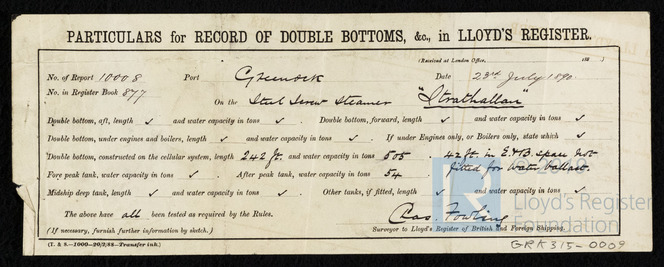 PARTICULARS for RECORD OF DOUBLE BOTTOMS, &c., in LLOYD'S REGISTER.
(Received at London Office, 188 )
No. of Report 10008 Port Greenock Date 23rd July 1890
No. in Register Book 877 On the Steel Screw Steamer "Strathallan"
Double bottom, aft, length ✓ and water capacity in tons ✓ . Double bottom, forward, length ✓ and water capacity in tons ✓
Double bottom, under engines and boilers, length ✓ and water capacity in tons ✓ If under Engines only, or Boilers only, state which ✓
Double bottom, constructed on the cellular system, length 242 ft. and water capacity in tons 505 . 42 ft. in E&B. space not
fitted for water ballast.
Fore peak tank, water capacity in tons ✓ . After peak tank, water capacity in tons 54 .
Midship deep tank, length ✓ and water capacity in tons ✓ . Other tanks, if fitted, length ✓ and water capacity in tons ✓
The above have all been tested as required by the Rules.
Chas. Fowling
(If necessary, furnish further information by sketch.) Surveyor to Lloyd's Register of British and Foreign Shipping.
(I. & S.—1000—20/2/88—Transfer ink.)
GRK315-0009
Lloyd's Register
Foundation